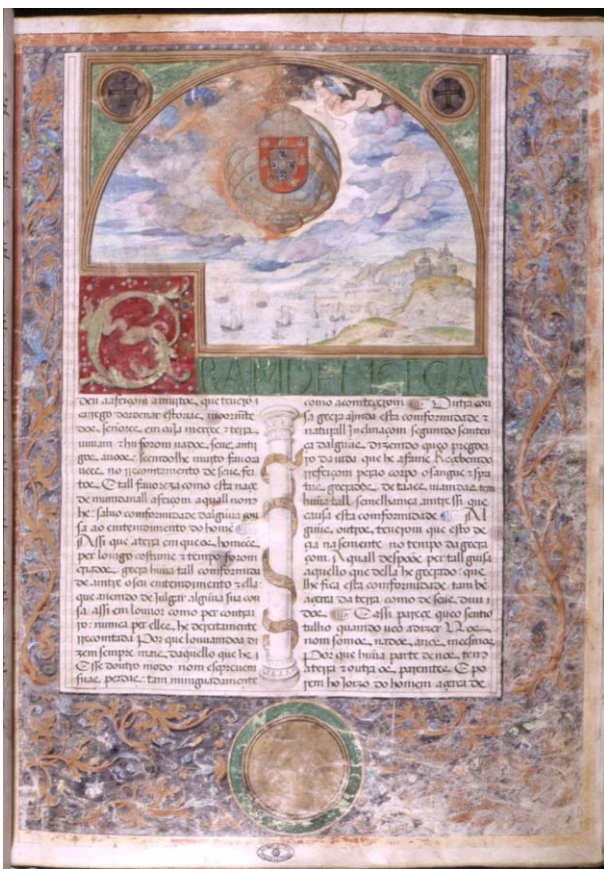 GRAMDE LICEÇA
deu a afeiçom a muitos, que teuerõ
carrego dordenar estorias, moormẽte
dos senhores em cuja mercee e terra
uiuiam e hu forom nados seus antij
gos auoos seendolhe muito fauora
uees no recontamento de seus fei
tos. E tall fauoreza como esta naçe
de mundanall afeiçom a quall nom
he: saluo comformidade dalgũua cou
sa ao entendimento do homẽ
Assi que a terra em que os homeẽs
per longo costume e tempo forom
criados, geera hũua tall comformida
de antre o seu entendimento e ella
que auendo de julgar algũua sua cou
sa. assi em louuor como per contrai
ro: numca per elles he dereitamente
recontada Por que louuamdoa di
zem sempre mais daquello que he:
E se doutro modo nom espreuem
suas perdas tam minguadamente
como acomteçerom Outra cou
sa geera ajnda esta comformidade e
naturall inclinaçom segundo senten
ça dalguũs. dizendo que o pregoei
ro da uida que he a fame Recebendo
refeiçom pera o corpo. o sangue e spri
tus geerados de taaes uiamdas tem
hũua tall semelhamça antre ssi que
causa esta comformidade Al
guũs outros teuerom que esto de
çia na semente no tempo da geera
çom A quall despooe per tall guisa
aquello que della he geerado: que
lhe fica esta comformidade tam bẽ
açerca da terra. como de seus diui
dos E assi parece que o sentio
tullio quando ueo a dizer Nos
nom somos nados a nos mesmos
Por que hũua parte de nos tem
a terra e outra os parentes E po
rem ho joizo do homem açerca de